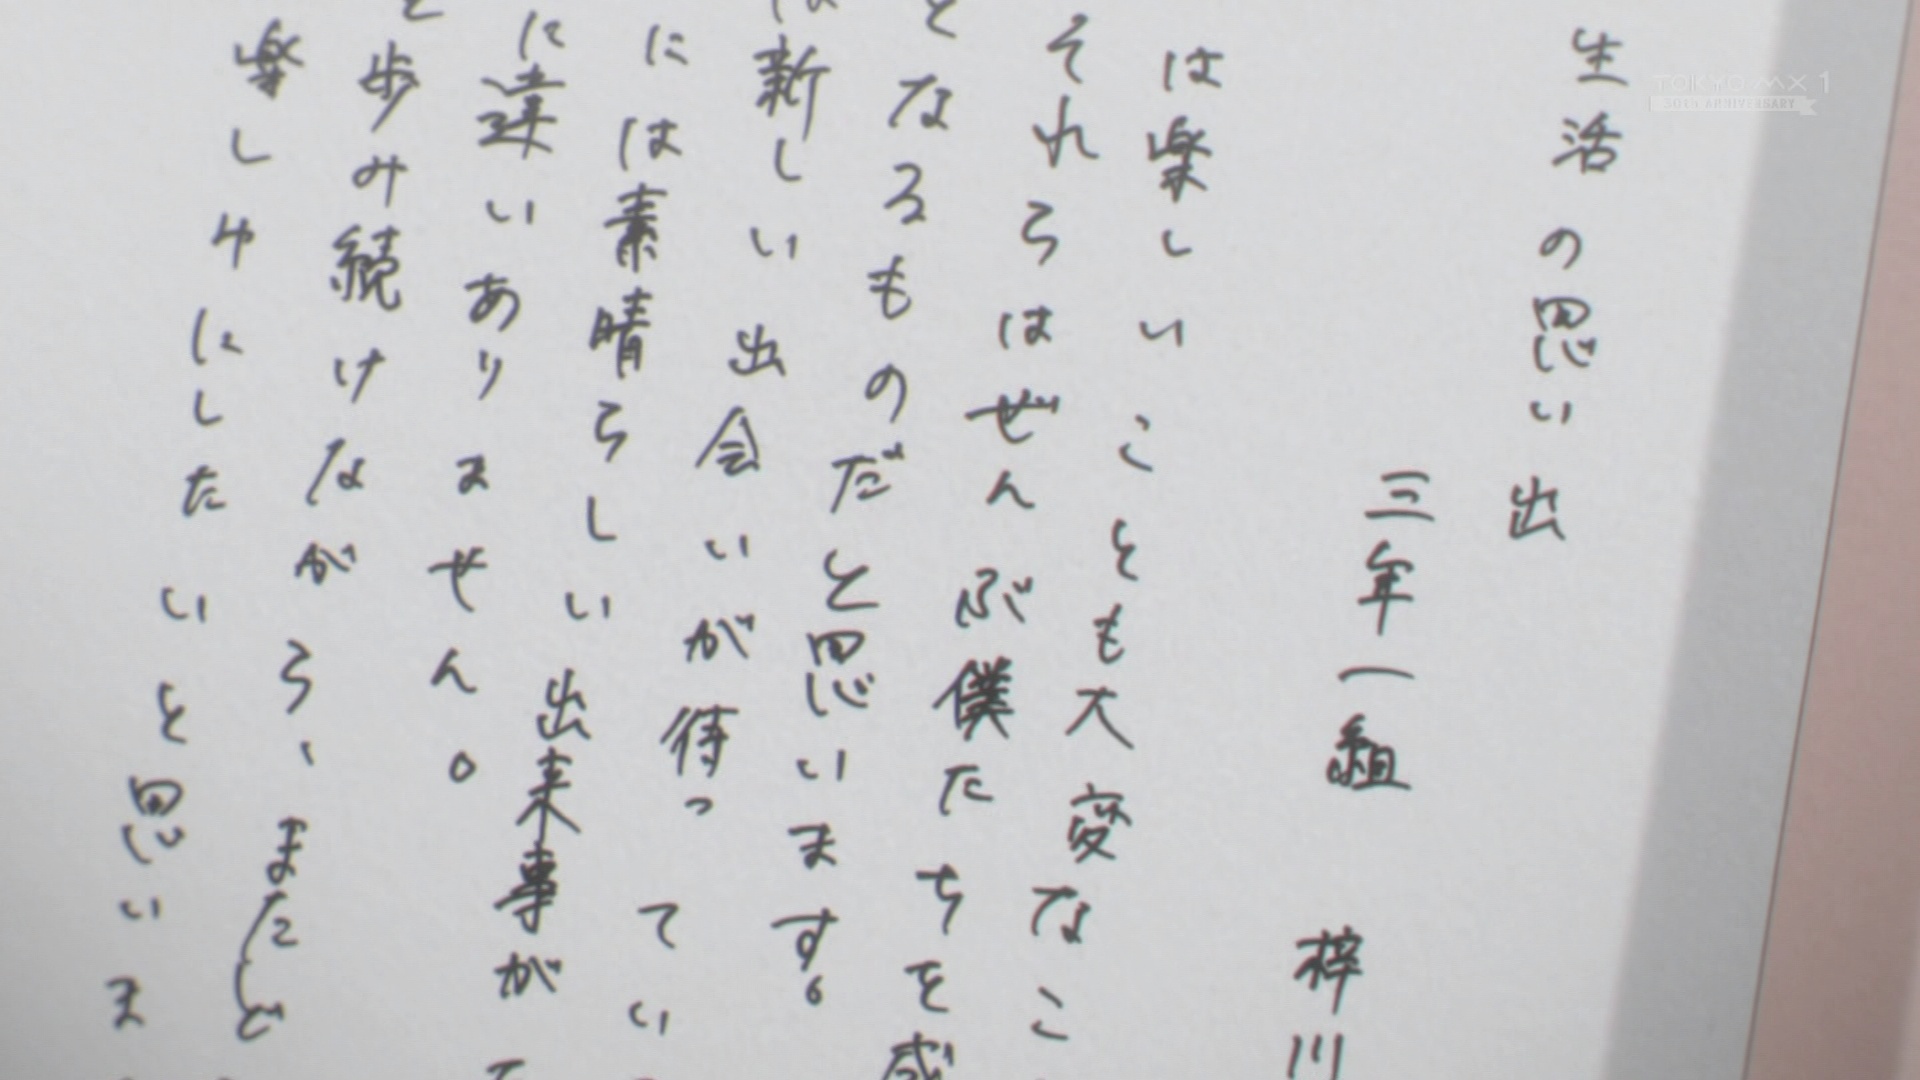 生活の思い出
三年一組 梓川
は楽しいことも大変なこ
それらはぜんぶ僕たちを感
となるものだと思います。
新しい出会いが待っ
には素晴らしい出来事がてい
に違いありません。
と歩み続けながら、またど
楽しみにしたいと思いま
TOKYO MX 1
30th ANNIVERSARY